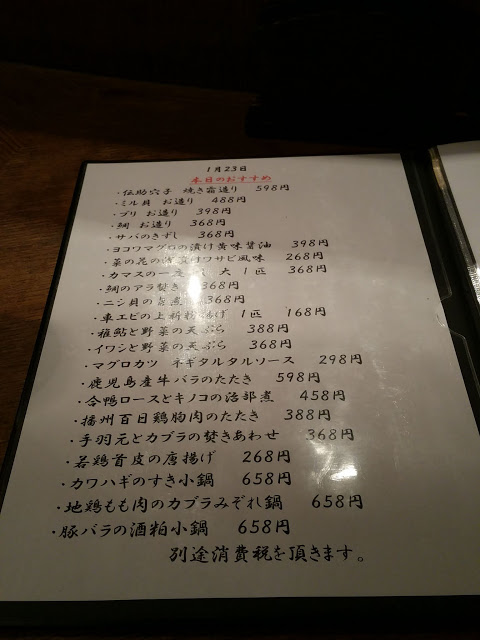 1月23日
本日のおすすめ
・伝助穴子 焼き霜造り 598円
・ミル貝 お造り 488円
・ブリ お造り 398円
・鯛 お造り 368円
・サバのきずし 368円
・ヨコワマグロの漬け黄味醤油 398円
・菜の花の ワサビ風味 268円
・カマスの一 大 1匹 368円
・鯛のアラ焚き 368円
・ニシ貝の 煮 368円
・車エビの上新粉揚げ 1匹 168円
・稚鮎と野菜の天ぷら 388円
・イワシと野菜の天ぷら 368円
・マグロカツ ネギタルタルソース 298円
・鹿児島産牛バラのたたき 598円
・合鴨ロースとキノコの治部煮 458円
・播州百日鶏胸肉のたたき 388円
・手羽元とカブラの焚きあわせ 368円
・若鶏首皮の唐揚げ 268円
・カワハギのすき小鍋 658円
・地鶏もも肉のカブラみぞれ鍋 658円
・豚バラの酒粕小鍋 658円
別途消費税を頂きます。